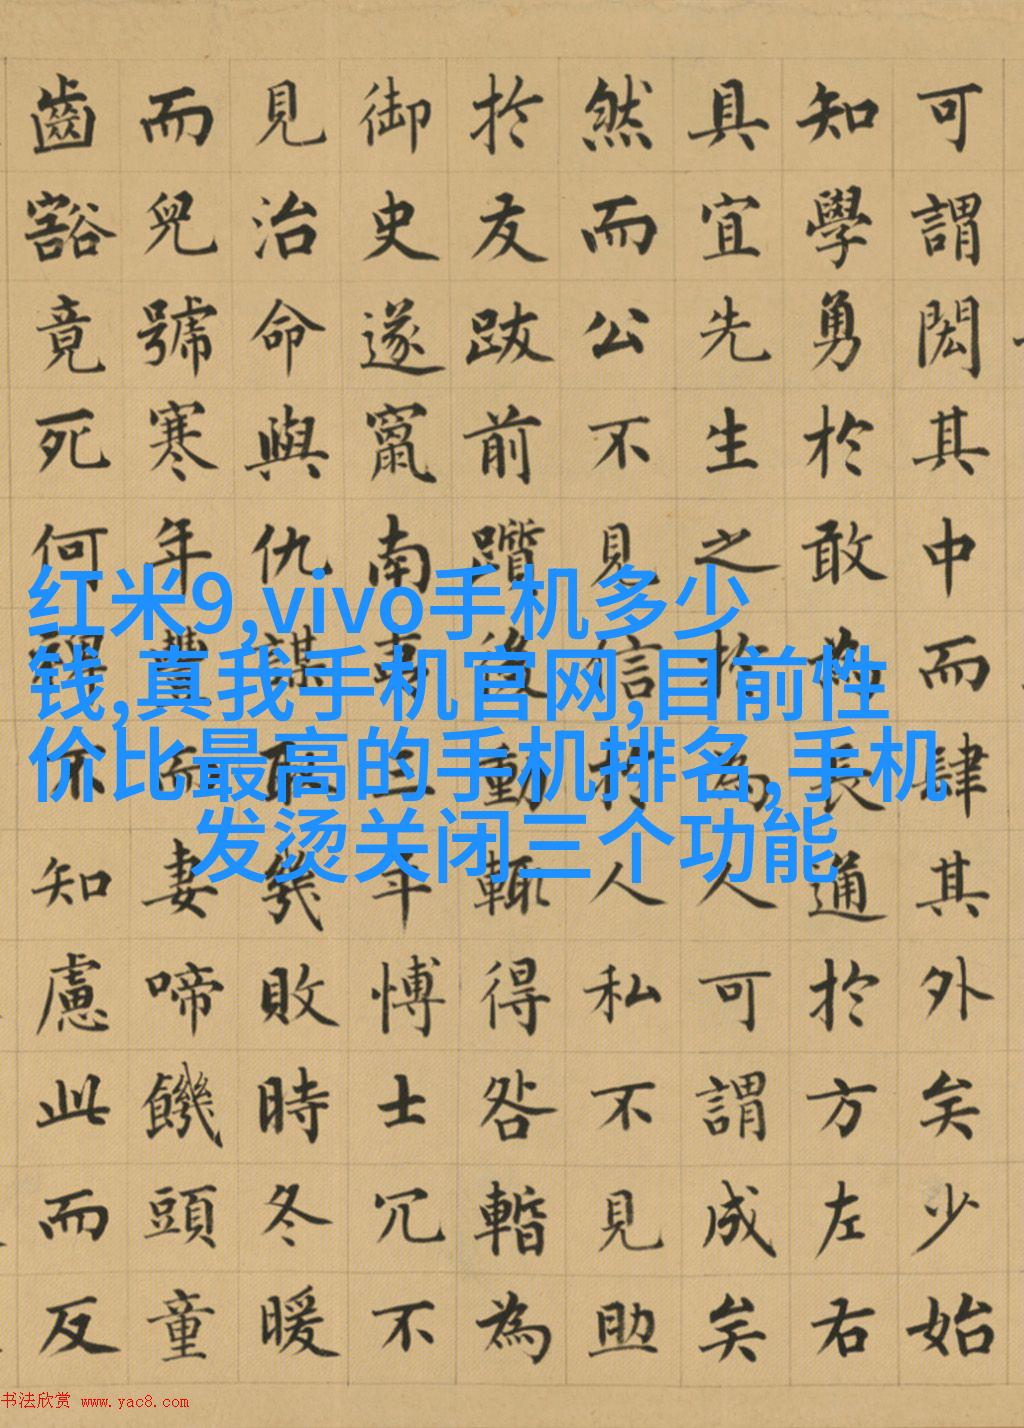 可謂閎其中而肆其外矣少始
知學勇於敢為長通於方左右
具宜先生之於為人可謂成矣
然而公不見信於人私不見助
於友跋前躓後動輒得咎暫為
御史遂竄南夷三年愽士冗不
見治命與仇謀取幾敗時冬暖
而兒號寒年豐而妻啼饑頭童
齒豁竟死何裨不知慮此而反
红米9,vivo手机多少
钱,真我手机官网,目前性
价比最高的手机排名,手机
发烫关闭三个功能
书法欣赏 www.yac8.com